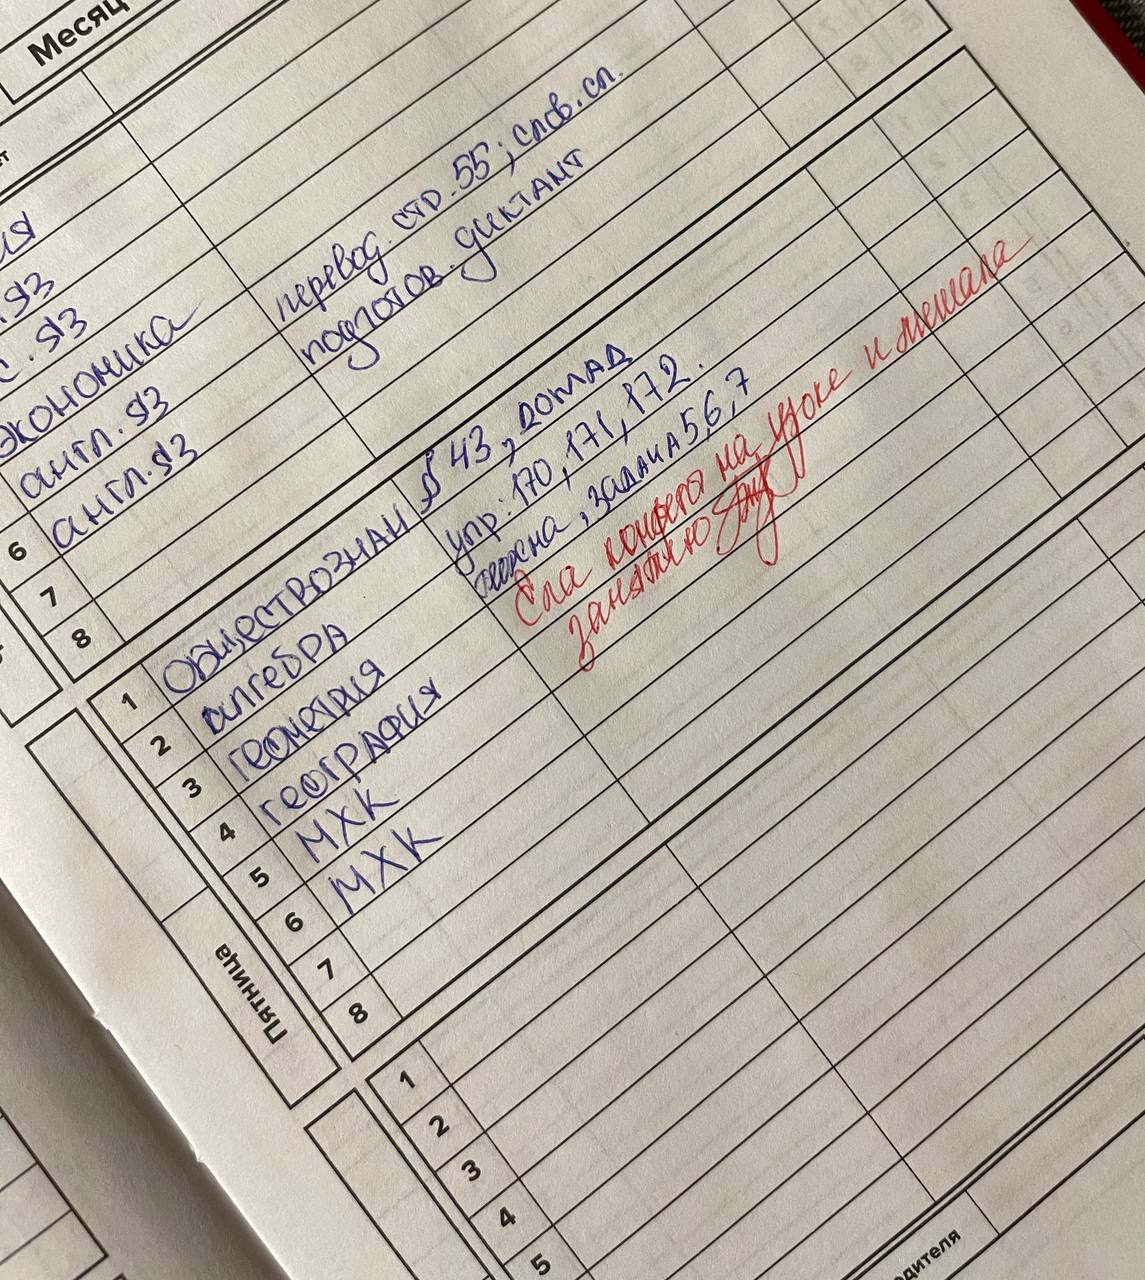 Месяц
ия
. яз
с. яз
экономика
англ. яз перевод. стр. 55; слов. сл.
6 англ. яз подготов. диктант
7
8
Пятница
1 ОБЩЕСТВОЗНАН § 43, доклад
2 алгебра упр: 170, 171, 172.
3 геометрия задача 5,6,7
4 география Ела конфеты на уроке и мешала
5 МХК занятию
6 МХК
7
8
1
2
3
4
5
одителя